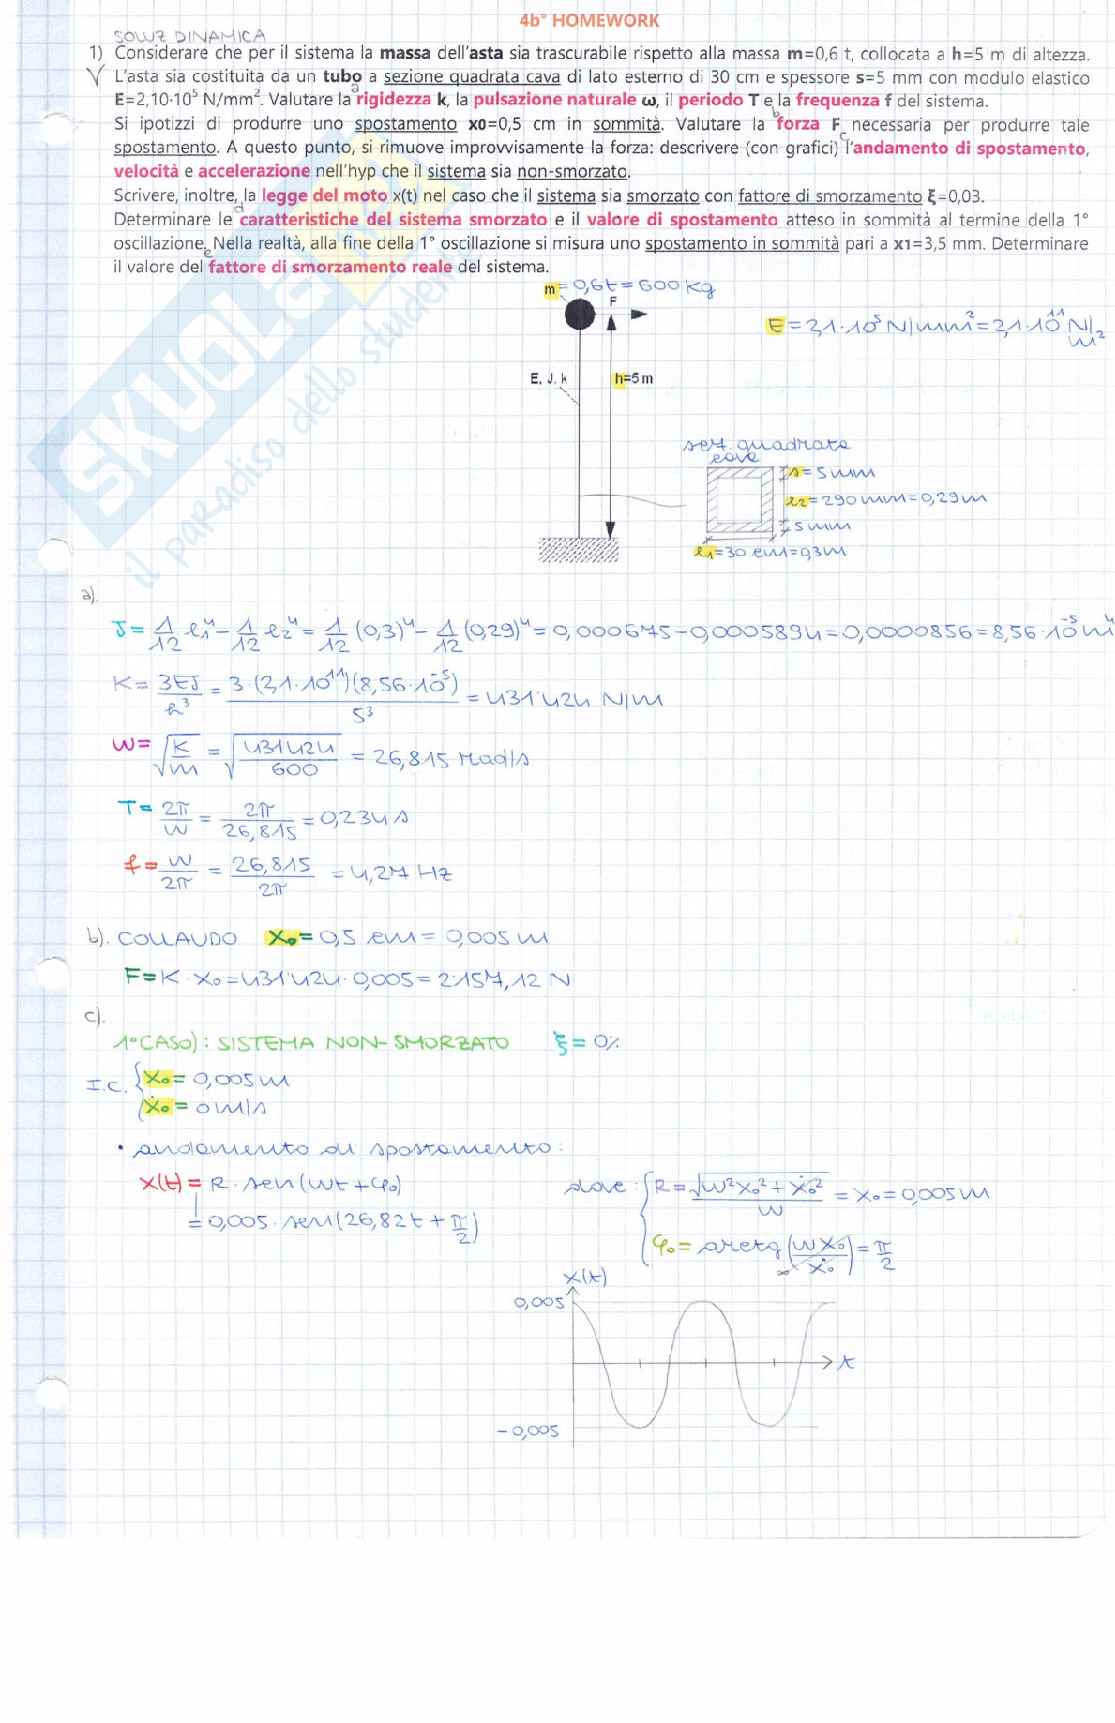 4b° HOMEWORK
SOLUZ DINAMICA
1) Considerare che per il sistema la massa dell'asta sia trascurabile rispetto alla massa m=0,6 t, collocata a h=5 m di altezza.
L'asta sia costituita da un tubo a sezione quadrata cava di lato esterno di 30 cm e spessore s=5 mm con modulo elastico
E=2,10·10⁵ N/mm². Valutare la rigidezza k, la pulsazione naturale ω, il periodo T e la frequenza f del sistema.
Si ipotizzi di produrre uno spostamento x0=0,5 cm in sommità. Valutare la forza F necessaria per produrre tale
spostamento. A questo punto, si rimuove improvvisamente la forza: descrivere (con grafici) l'andamento di spostamento,
velocità e accelerazione nell'hyp che il sistema sia non-smorzato.
Scrivere, inoltre, la legge del moto x(t) nel caso che il sistema sia smorzato con fattore di smorzamento ξ=0,03.
Determinare le caratteristiche del sistema smorzato e il valore di spostamento atteso in sommità al termine della 1°
oscillazione. Nella realtà, alla fine della 1° oscillazione si misura uno spostamento in sommità pari a x1=3,5 mm. Determinare
il valore del fattore di smorzamento reale del sistema.
SKUOLA.net
il paradiso dello studente
m = 0,6t = 600 kg
F
E = 2,1·10⁵ N/mm² = 2,1·10¹¹ N/m²
E, J, k
h=5m
sez. quadrata
cava
s = 5 mm
l2 = 290 mm = 0,29m
5 mm
l1 = 30 cm = 0,3m
a).
J = 1/12 l1⁴ - 1/12 l2⁴ = 1/12 (0,3)⁴ - 1/12 (0,29)⁴ = 0,000675 - 0,0005894 = 0,0000856 = 8,56·10⁻⁵ m⁴
K = 3EJ/h³ = 3·(2,1·10¹¹)(8,56·10⁻⁵)/5³ = 431'424 N/m
ω = √(K/m) = √(431'424/600) = 26,815 rad/s
T = 2π/ω = 2π/26,815 = 0,234 s
f = ω/2π = 26,815/2π = 4,27 Hz
b). COLLAUDO x0 = 0,5 cm = 0,005 m
F = K · x0 = 431'424 · 0,005 = 2'157,12 N
c).
1° CASO) : SISTEMA NON-SMORZATO ξ = 0%
I.C. { x0 = 0,005 m
ẋ0 = 0 m/s
• andamento di spostamento :
x(t) = R · sen(ωt + φ0) dove : { R = √(ω²x0² + ẋ0²)/ω = x0 = 0,005 m
= 0,005 · sen(26,82t + π/2)
φ0 = arctg (ωx0/ẋ0) = π/2
∞
x(t)
0,005
t
- 0,005